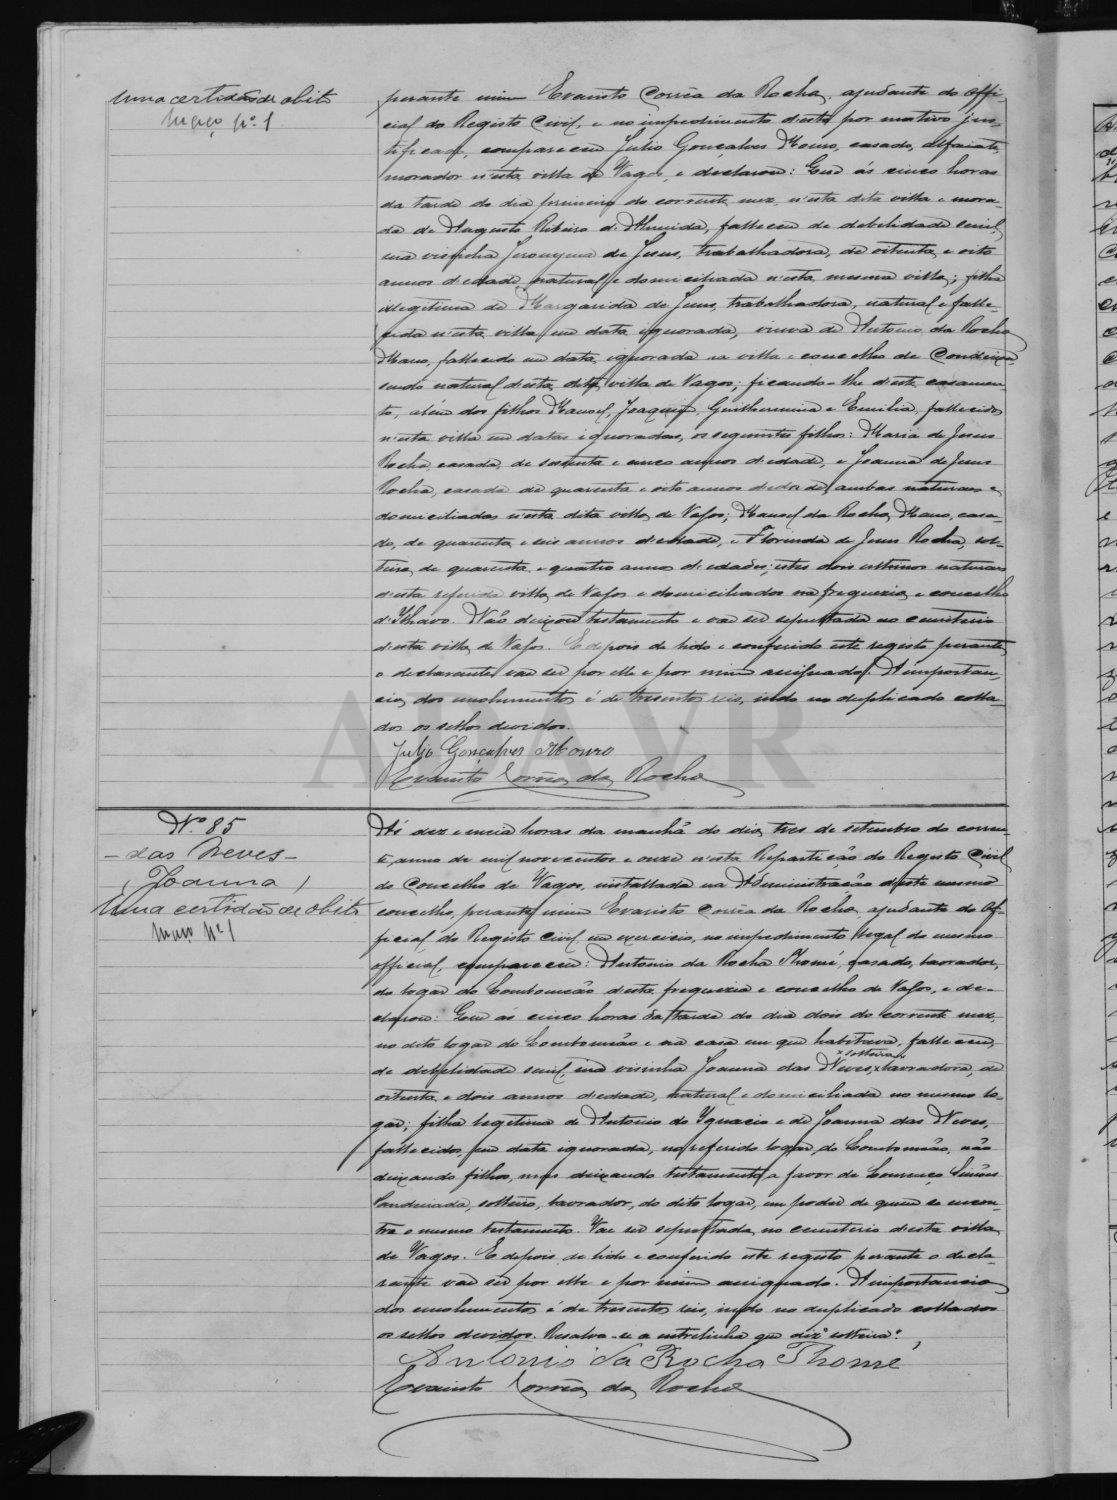 Uma certidão de obito
Março nº 1
perante mim Evaristo Corrêa da Rocha, ajudante do offi-
cial do Registo Civil, e no impedimento d'este por motivo jus-
tificado, compareceu Julio Gonçalves Mouro, casado, alfaiate,
morador n'esta villa de Vagos, e declarou: Que ás cinco horas
da tarde do dia primeiro do corrente mez, n'esta dita villa e mora-
da de Augusto Ribeiro d'Almeida, falleceu de debilidade senil,
sua visinha Jeronyma de Jesus, trabalhadora, de oitenta e oito
annos d'edade, natural e domiciliada n'esta mesma villa; filha
illegitima de Margarida de Jesus, trabalhadora, natural e falle-
cida n'esta villa em data ignorada, viuva de Antonio da Rocha
Mano, fallecido em data ignorada na villa e concelho de Condeixa
sendo natural d'esta dita villa de Vagos; ficando-lhe d'este casamen-
to, além dos filhos Manoel, Joaquim, Guilhermina e Emilia, fallecidos
n'esta villa em datas ignoradas, os seguintes filhos: Maria de Jesus
Rocha, casada, de sessenta e cinco annos d'edade, e Joanna de Jesus
Rocha, casada de quarenta e oito annos d'edade, ambas naturaes e
domiciliadas n'esta dita villa de Vagos; Manoel da Rocha Mano, casa-
do, de quarenta e seis annos d'edade, e Florinda de Jesus Rocha, sol-
teira, de quarenta e quatro annos d'edade; estes dois ultimos naturaes
d'esta referida villa de Vagos e domiciliados na freguezia e concelho
d'Ilhavo. Não deixou testamento e vae ser sepultada no cemiterio
d'esta villa de Vagos. E depois de lido e conferido este registo perante
o declarante vae ser por elle e por mim assignado. A importan-
cia dos emolumentos é de tresentos reis, indo no duplicado colla-
dos os sellos devidos.
Julio Gonçalves Mouro
Evaristo Corrêa da Rocha
Nº 85
- das Neves -
(Joanna)
Uma certidão de obito
Março Nº 1
Ás dez e meia horas da manhã do dia tres de setembro do corren-
te, anno de mil novecentos e onze n'esta Repartição do Registo Civil
do Concelho de Vagos, installada na Administração d'este mesmo
concelho, perante mim Evaristo Corrêa da Rocha, ajudante do of-
ficial do Registo Civil em exercicio, no impedimento legal do mesmo
official, compareceu: Antonio da Rocha Thomé, casado, lavrador,
do logar do Lombomeão d'esta freguezia e concelho de Vagos, e de-
clarou: Que ás cinco horas da tarde do dia dois do corrente mez,
no dito logar do Lombomeão e na casa em que habitava, falleceu,
de debilidade senil, sua visinha Joanna das Neves, solteira, lavradora, de
oitenta e dois annos d'edade, natural e domiciliada no mesmo lo-
gar; filha legitima de Antonio do Ignacio e de Joanna das Neves,
fallecidos, em data ignorada, no referido logar do Lombomeão, não
deixando filhos, mas deixando testamento a favor de Lourenço Simões
solteiro, lavrador, do dito logar, em poder de quem se encon-
tra o mesmo testamento. Vae ser sepultada no cemiterio d'esta villa
de Vagos. E depois de lido e conferido este registo perante o decla-
rante vae ser por elle e por mim assignado. A importancia
dos emolumentos é de tresentos reis, indo no duplicado collados
os sellos devidos. Resalva-se a entrelinha que diz "solteira".
Antonio da Rocha Thomé
Evaristo Corrêa da Rocha
ADAVR